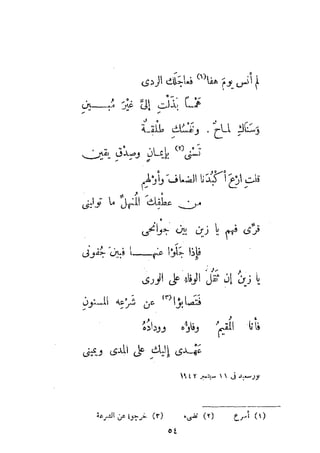 لم أنس يومَ هفا(١) فعاجلكِ الردى
همسًا بذلتِ إلىَّ غيرَ مُبـين
وَسَناكِ لماحٌ . ونفسُكِ طلقةٌ
تَسْنى(٢) بإيمانٍ وصِدقِ يقين
قلتِ ارْعَ أكبُدَنا الضعافَ وأَوْلِهم
من عطفِكَ المُنهلِّ ما توليني
قَرِّى فهم يا زين بين جوانحى
فإذا جلَوْا عنهـا فبين جُفونى
يا زينُ إن ثَقُلَ الوفاءِ على الورى
فتصابؤا(٣) عن شرعِه المسنونِ
فأنا المُقيمُ وفاؤه وودادُهُ
عَهْدى إليكِ على المدى ويمينى
بورسعيد فى ١١ سبتمبر ١٩٤٢
(١) أسرع (٢) تضىء (٣) خرجوا عن الشرعة
٥٤